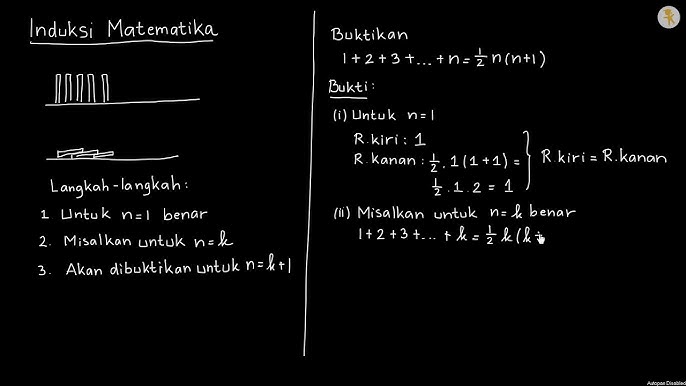 Induksi Matematika
Langkah-langkah:
1 Untuk n=1 benar
2. Misalkan untuk n=k
3. Akan dibuktikan untuk n=k+1
Buktikan
1+2+3+...+n=½n(n+1)
Bukti:
(i) Untuk n=1
R.kiri: 1
R.kanan: ½.1(1+1)=
½.1.2=1
R.kiri=R.kanan
(ii) Misalkan untuk n=k benar
1+2+3+...+k=½k(k+
Autopan Disabled